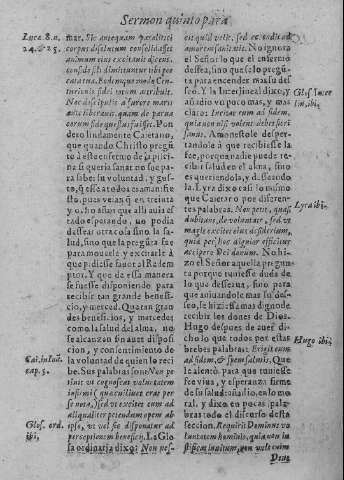 Sermon quinto para
Luca. 8. n.
24. & 25.
mar. Sic antequam paralitici
corpus dissolutum consolidasset
animum eius excitauit dicens.
confide fili dimittuntur tibi pec
cata tua.
Non discipulis a furore maris
ante liberauit, quam de parua
eorum fide questus fuisset. Pon
dero lindamente Caietano,
que quando Christo pregũ
tò à este enfermo de la pisci-
na si queria sanar no fue pa-
ra saber su voluntad, y gus-
to, q̃ esse à todos es manifie
sto, pues veian q̃ en treinta
y ocho años que alli auia es
tado esperando, no podia
dessear otra cosa sino la sa-
lud, sino que la pregũta fue
para mouerle y excitarle à
que pidiesse fauor al Redem
ptor. Y que de essa manera
se fuesse disponiendo para
recibir tan grande benefi-
cio, y merced. Que tan gran
des beneficios, y mercedes
como la salud del alma, no
se alcançan sin auer disposi
cion, y consentimiento de
la voluntad de quien lo reci
be. Sus palabras son: Non pe
tiuit vt cognoscat voluntatem
infirmi
aliqualiter petendam opem ab
ipso, vt vel sic disponatur ad
perceptionem beneficij. La Glo
sa ordinaria dixo: Non nes-
Cai. in Ioã.
cap. 5.
Glos. ord.
ibi,
cit quid velit, sed excitat ad
amorem sanitatis. No ignora
el Señor lo que el enfermo
dessea, sino que solo pregũ-
ta para encender mas su des
seo. Y la Interlineal dixo, y
añadio vn poco mas, y mas
claro:
quia non vult debet fieri
sanus. Amonestole desper-
tandole à que recibiesse la
fee, porque nadie puede re-
cibir la salud en el alma, sino
es queriendola, y desseando
la. Lyra dixo casi lo mismo
que Caietano por diferen-
tes palabras. Non petit, quasi
dubitans, de voluntate, sed vt
magis excitet eius desiderium,
quia per hoc dignior efficitur
accipere Dei donum. No hi-
zo el Señor aquella pregun-
ta porque tuuiesse duda de
lo que desseaua, sino para
que auiuandole mas su des-
seo, se hiziesse mas digno de
recibir los dones de Dios.
Hugo despues de auer di-
cho lo que todos por estas
breues palabras: Erigit eum
ad fidem, & spem salutis. Que
le alentò para que tuuiesse
fee viua, y esperança firme
de su salud: añadio, en lo mo
ral, y dixo en pocas pala-
bras todo el discurso desta
seccion. Requirit Dominus vo
luntatem hominis, quia non iu
stificat inuitum, non vult enim
Deus
Glos. Inter
lin, ibi,
Lyra ibi,
Hugo ibi,